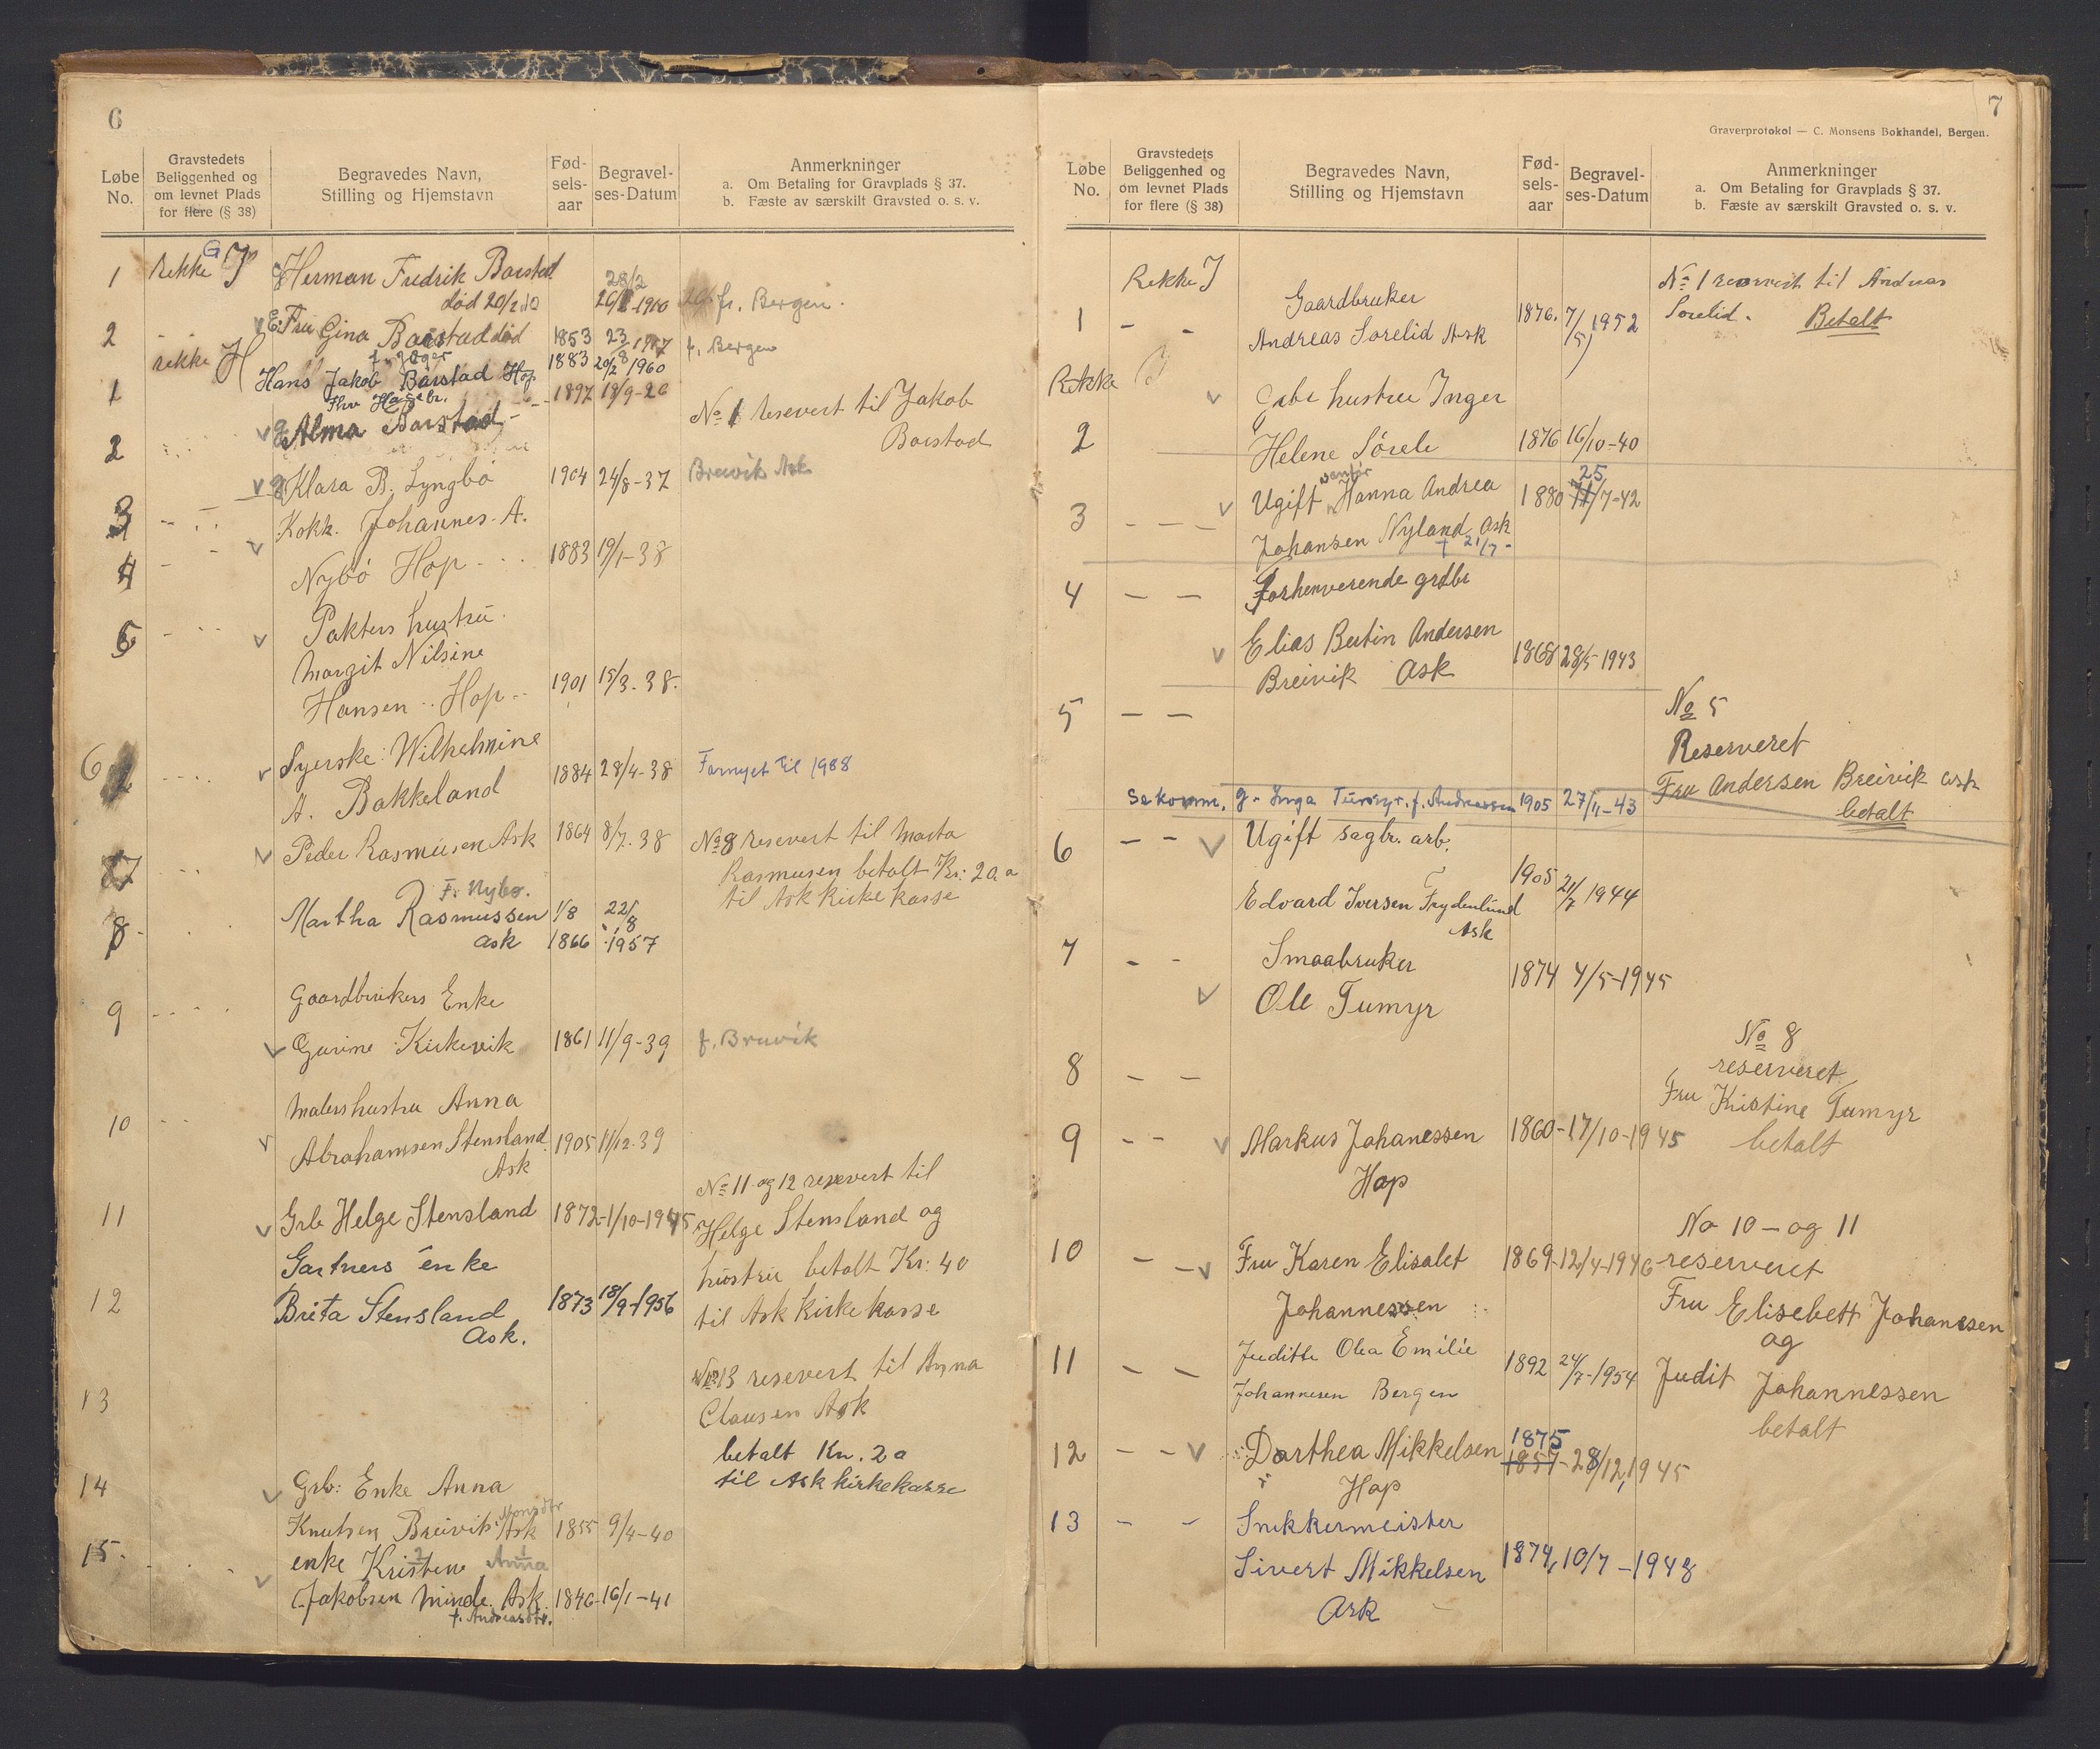 6
Løbe No.
Gravstedets Beliggenhed og om levnet Plads for flere (§ 38)
Begravedes Navn, Stilling og Hjemstavn
Fød-sels-aar
Begravel-ses-Datum
Anmerkninger
a. Om Betaling for Gravplads § 37.
b. Fæste av særskilt Gravsted o. s. v.
1 rekke G Herman Fredrik Barstad 28/2
død 20/2 1960 fr. Bergen.
2 Fru Gina Barstad død 1853 23/8 1917 f. Bergen
rekke H
1 Hans Jakob Barstad Hop 1883 20/2 1960
Fhv
Alma Barstad 1897 18/9-26 No 1 resevert til Jakob
Barstad
2
Klara B. Lyngbø 1904 24/8-37 Breivik Ask
3 Kokk. Johannes A.
4 Nybø Hop 1883 19/1-38
5 Pakters hustru
Margit Nilsine
Hansen Hop 1901 15/3-38.
6 Syerske: Wilhelmine
A. Bakkeland 1884 28/4-38 Fornyet til 1988
7 Peder Rasmusen Ask 1864 8/7.38 No 8 resevert til Marta
Rasmusen betalt Kr: 20
til Ask Kirke kasse
F. Nybø.
8 Martha Rasmussen 1/8 22/8
Ask 1866 1957
9 Gaardbrukers Enke
Gurine Kirkevik 1861 11/9-39 f. Bruvik
10 Malershustru Anna
Abrahamsen Stensland 1905 11/12.39
Ask
No 11 og 12 resevert til
11 Grb Helge Stensland 1872-1/10-1945 Helge Stensland og
Gartners enke hustru betalt Kr: 40
12 Brita Stensland 1873 18/9-1956 til Ask Kirke kasse
Ask.
13 No 13 resevert til Anna
Clausen Ask
betalt Kr. 20
til Ask kirkekasse
14 Grb: Enke Anna
Monsdtr
Knutsen Breivik Ask 1855 9/4-40
15. enke Kristine Anna
Jakobsen Minde. Ask. 1846-16/1-41
f. Andreasdtr.
7
Graverprotokol — C. Monsens Bokhandel, Bergen.
Løbe No.
Gravstedets Beliggenhed og om levnet Plads for flere (§ 38)
Begravedes Navn, Stilling og Hjemstavn
Fød-sels-aar
Begravel-ses-Datum
Anmerkninger
a. Om Betaling for Gravplads § 37.
b. Fæste av særskilt Gravsted o. s. v.
Rekke J
No 1 reservert til Andreas
1 - - Gaardbruker
Andreas Sorelid Ask 1876. 7/5 1952 Sorelid. Betalt
Rekke
hustru Inger
2 Helene Sørele 1876 16/10-40
3 - - - Ugift Hanna Andrea 1880 25/7-42
Johansen Nyland Ask
† 21/7-
4 - - Forhenverende grdbr
Elias Bertin Andersen
Breivik Ask 1868 28/5 1943
5 - - No 5
Reserveret
Fru Andersen Breivik Ask
betalt
Inga f. Andreassen 1905 27/11-43
6 - - Ugift sagbr. arb.
Edvard Iversen Frydenlund 1905 21/7 1944
Ask
7 - - Smaabruker
Ole Tumyr 1874 4/5-1945
8 - - No 8
reserveret
Fru Kristine Tumyr
betalt
9 - - Markus Johanessen 1860-17/10-1945
Hop
No 10 - og 11
10 - - Fru Karen Elisabet 1869-12/4-1946 reserveret
Johannessen Fru Elisebett Johanssen
og
11 - - Judithe Olea Emilie 1892 24/7-1954 Judit Johannessen
Johannesen Bergen betalt
12 - - Dorthea Mikkelsen 1875
1857-28/12,1945
Hop
13 - - Snekkermeister
Sivert Mikkelsen 1874, 10/7-1948
Ask